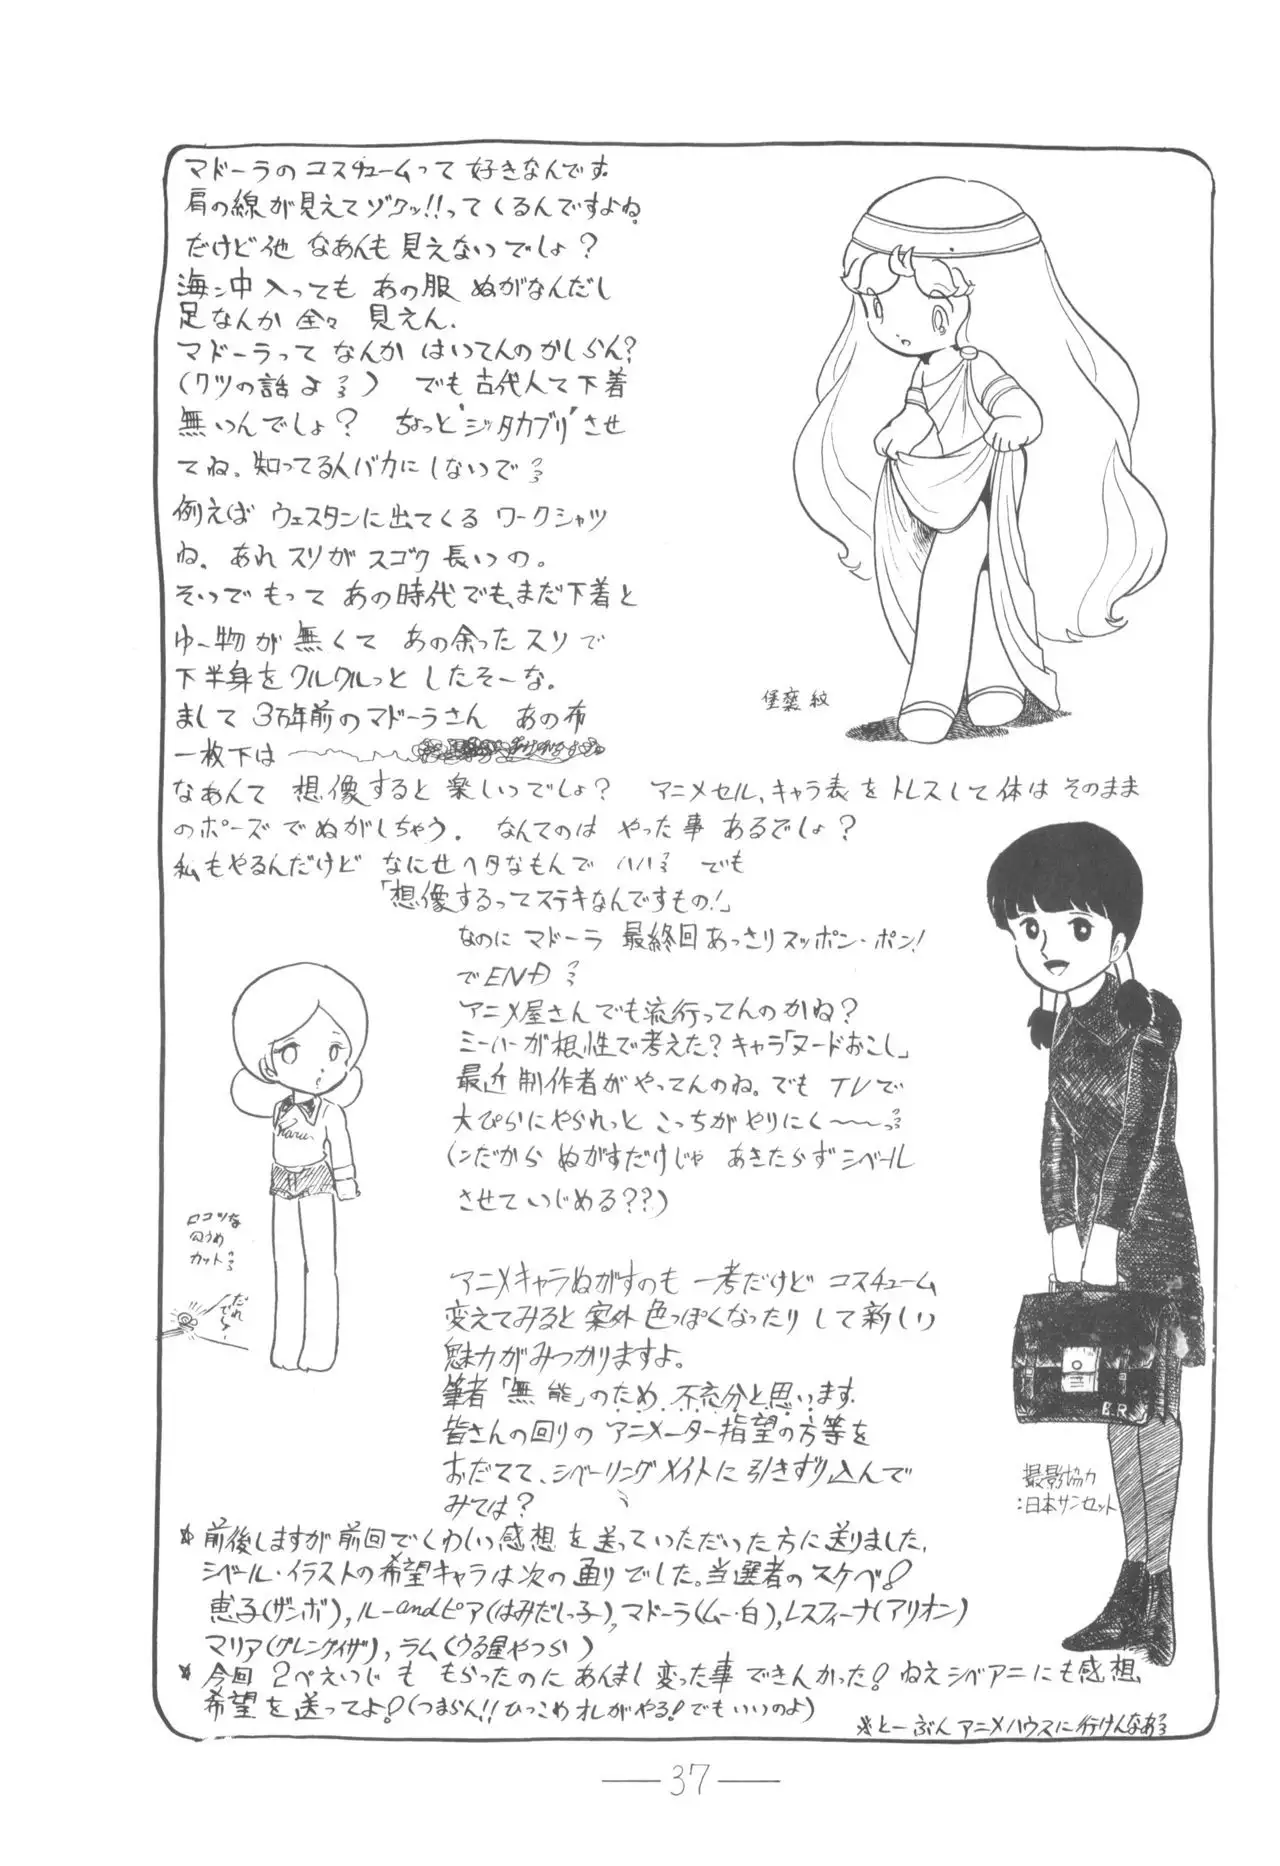 マドーラのコスチュームって 好きなんです。
肩の線が見えてゾクッ!!ってくるんですよね。
だけど他 なあんも見えないでしょ?
海ン中入っても あの服 ぬがなんだし
足なんか 全々 見えん.
マドーラって なんか はいてんのかしらん?
(クツの話よ) でも古代人て下着
無いんでしょ? ちょっと“シッタカブリ”させ
てね。知ってる人バカにしないで
例えば ウェスタンに出てくる ワークシャツ
ね、あれスソがスゴク長いの。
そいでもって あの時代でも、まだ下着と
ゆー物が無くて あの余ったスソで
下半身をクルクルっと したそーな。
まして3万年前のマドーラさん あの布
一枚下は
なあんて 想像すると 楽しいでしょ? アニメセル、キャラ表をトレスして体は そのまま
のポーズでぬがしちゃう. なんてのは やった事あるでしょ?
私もやるんだけど なにせヘタなもんで ハハ でも
「想像するってステキなんですもの!」
なのに マドーラ 最終回あっさりスッポン・ポン!
でEND
アニメ屋さんでも流行ってんのかね?
ミーハーが根性で考えた?キャラ「ヌードおこし」
最近 制作者がやってんのね。でも TVで
大ぴらにやられっと こっちがやりにく〜〜っ
(ンだから ぬがすだけじゃ あきたらずシベール
させていじめる??)
アニメキャラぬがすのも 一考だけど コスチューム
変えてみると案外色っぽくなったり して新しい
魅力がみつかりますよ。
筆者「無能」のため、不充分と思います.
皆さんの回りの アニメーター指望の方等を
おだてて、シベーリングメイトに引きずり込んで
みては?
堡蘂 紋
Karu
ロコツな
穴うめ
カット
だれ
でぇ〜!
B.R.
撮影協力
:日本サンセット
* 前後しますが前回でくわしい感想を送っていただいた方に送りました.
シベール・イラストの希望キャラは次の通りでした。当選者のスケベ!
恵子(ザンボ), ルーandピア(はみだしっ子), マドーラ(ムー・白), レスフィーナ(アリオン)
マリア(グレンダイザ), ラム(うる星やつら)
* 今回 2ぺえじも もらったのにあんまし変った事できんかった! ねえシベアニにも感想、
希望を送ってよ!(つまらん!!ひっこめオレがやる!でもいいのよ)
※とーぶん アニメハウスに行けんなあ
— 37 —